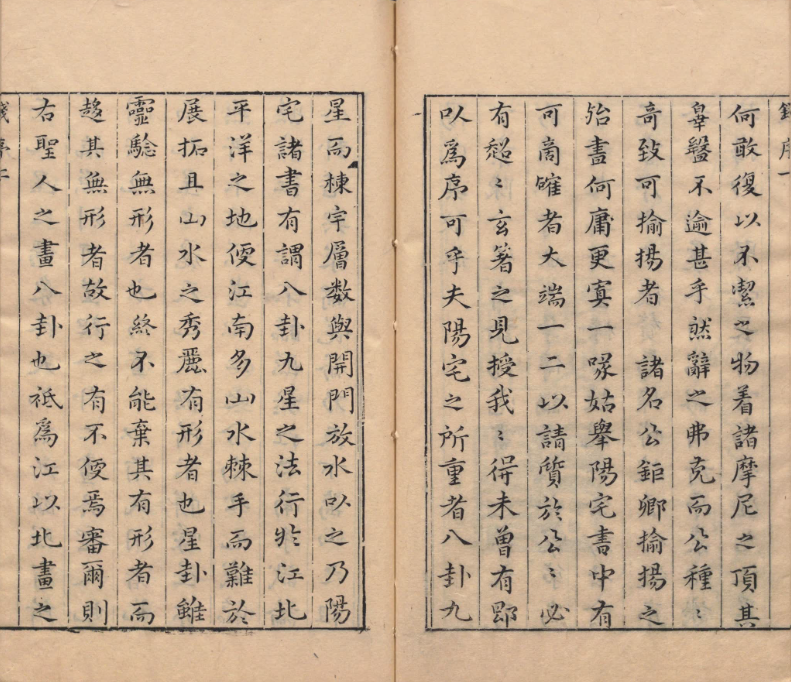 何敢復以不潔之物着諸摩尼之頂其
辠盭不逾甚乎然辭之弗克而公種〻
奇致可揄揚者諸名公鉅卿揄揚之
殆盡何庸更寘一喙姑舉陽宅書中有
可商確者大端一二以請質於公〻必
有超〻玄著之見授我〻得未曾有即
以爲序可乎夫陽宅之所重者八卦九
星而棟宇層数與開門放水以之乃陽
宅諸書有謂八卦九星之法行於江北
平洋之地便江南多山水棘手而難於
展拓且山水之秀麗有形者也星卦雖
靈驗無形者也終不能棄其有形者而
趍其無形者故行之有不便焉審爾則
右聖人之畫八卦也祗爲江以北畫之